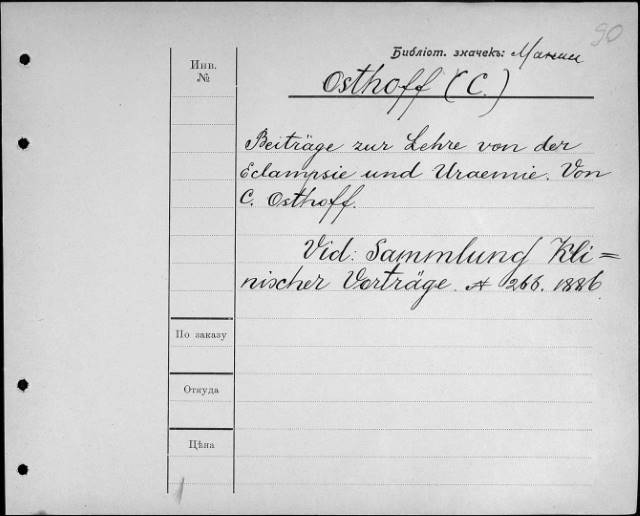 90
Библіот. значекъ:
Инв.
№
Osthoff (C.)
Beiträge zur Lehre von der
Eclampsie und Uraemie. Von
C. Osthoff.
Vid: Sammlung Kli=
nischer Vorträge. № 266. 1886
По заказу
Откуда
Цѣна